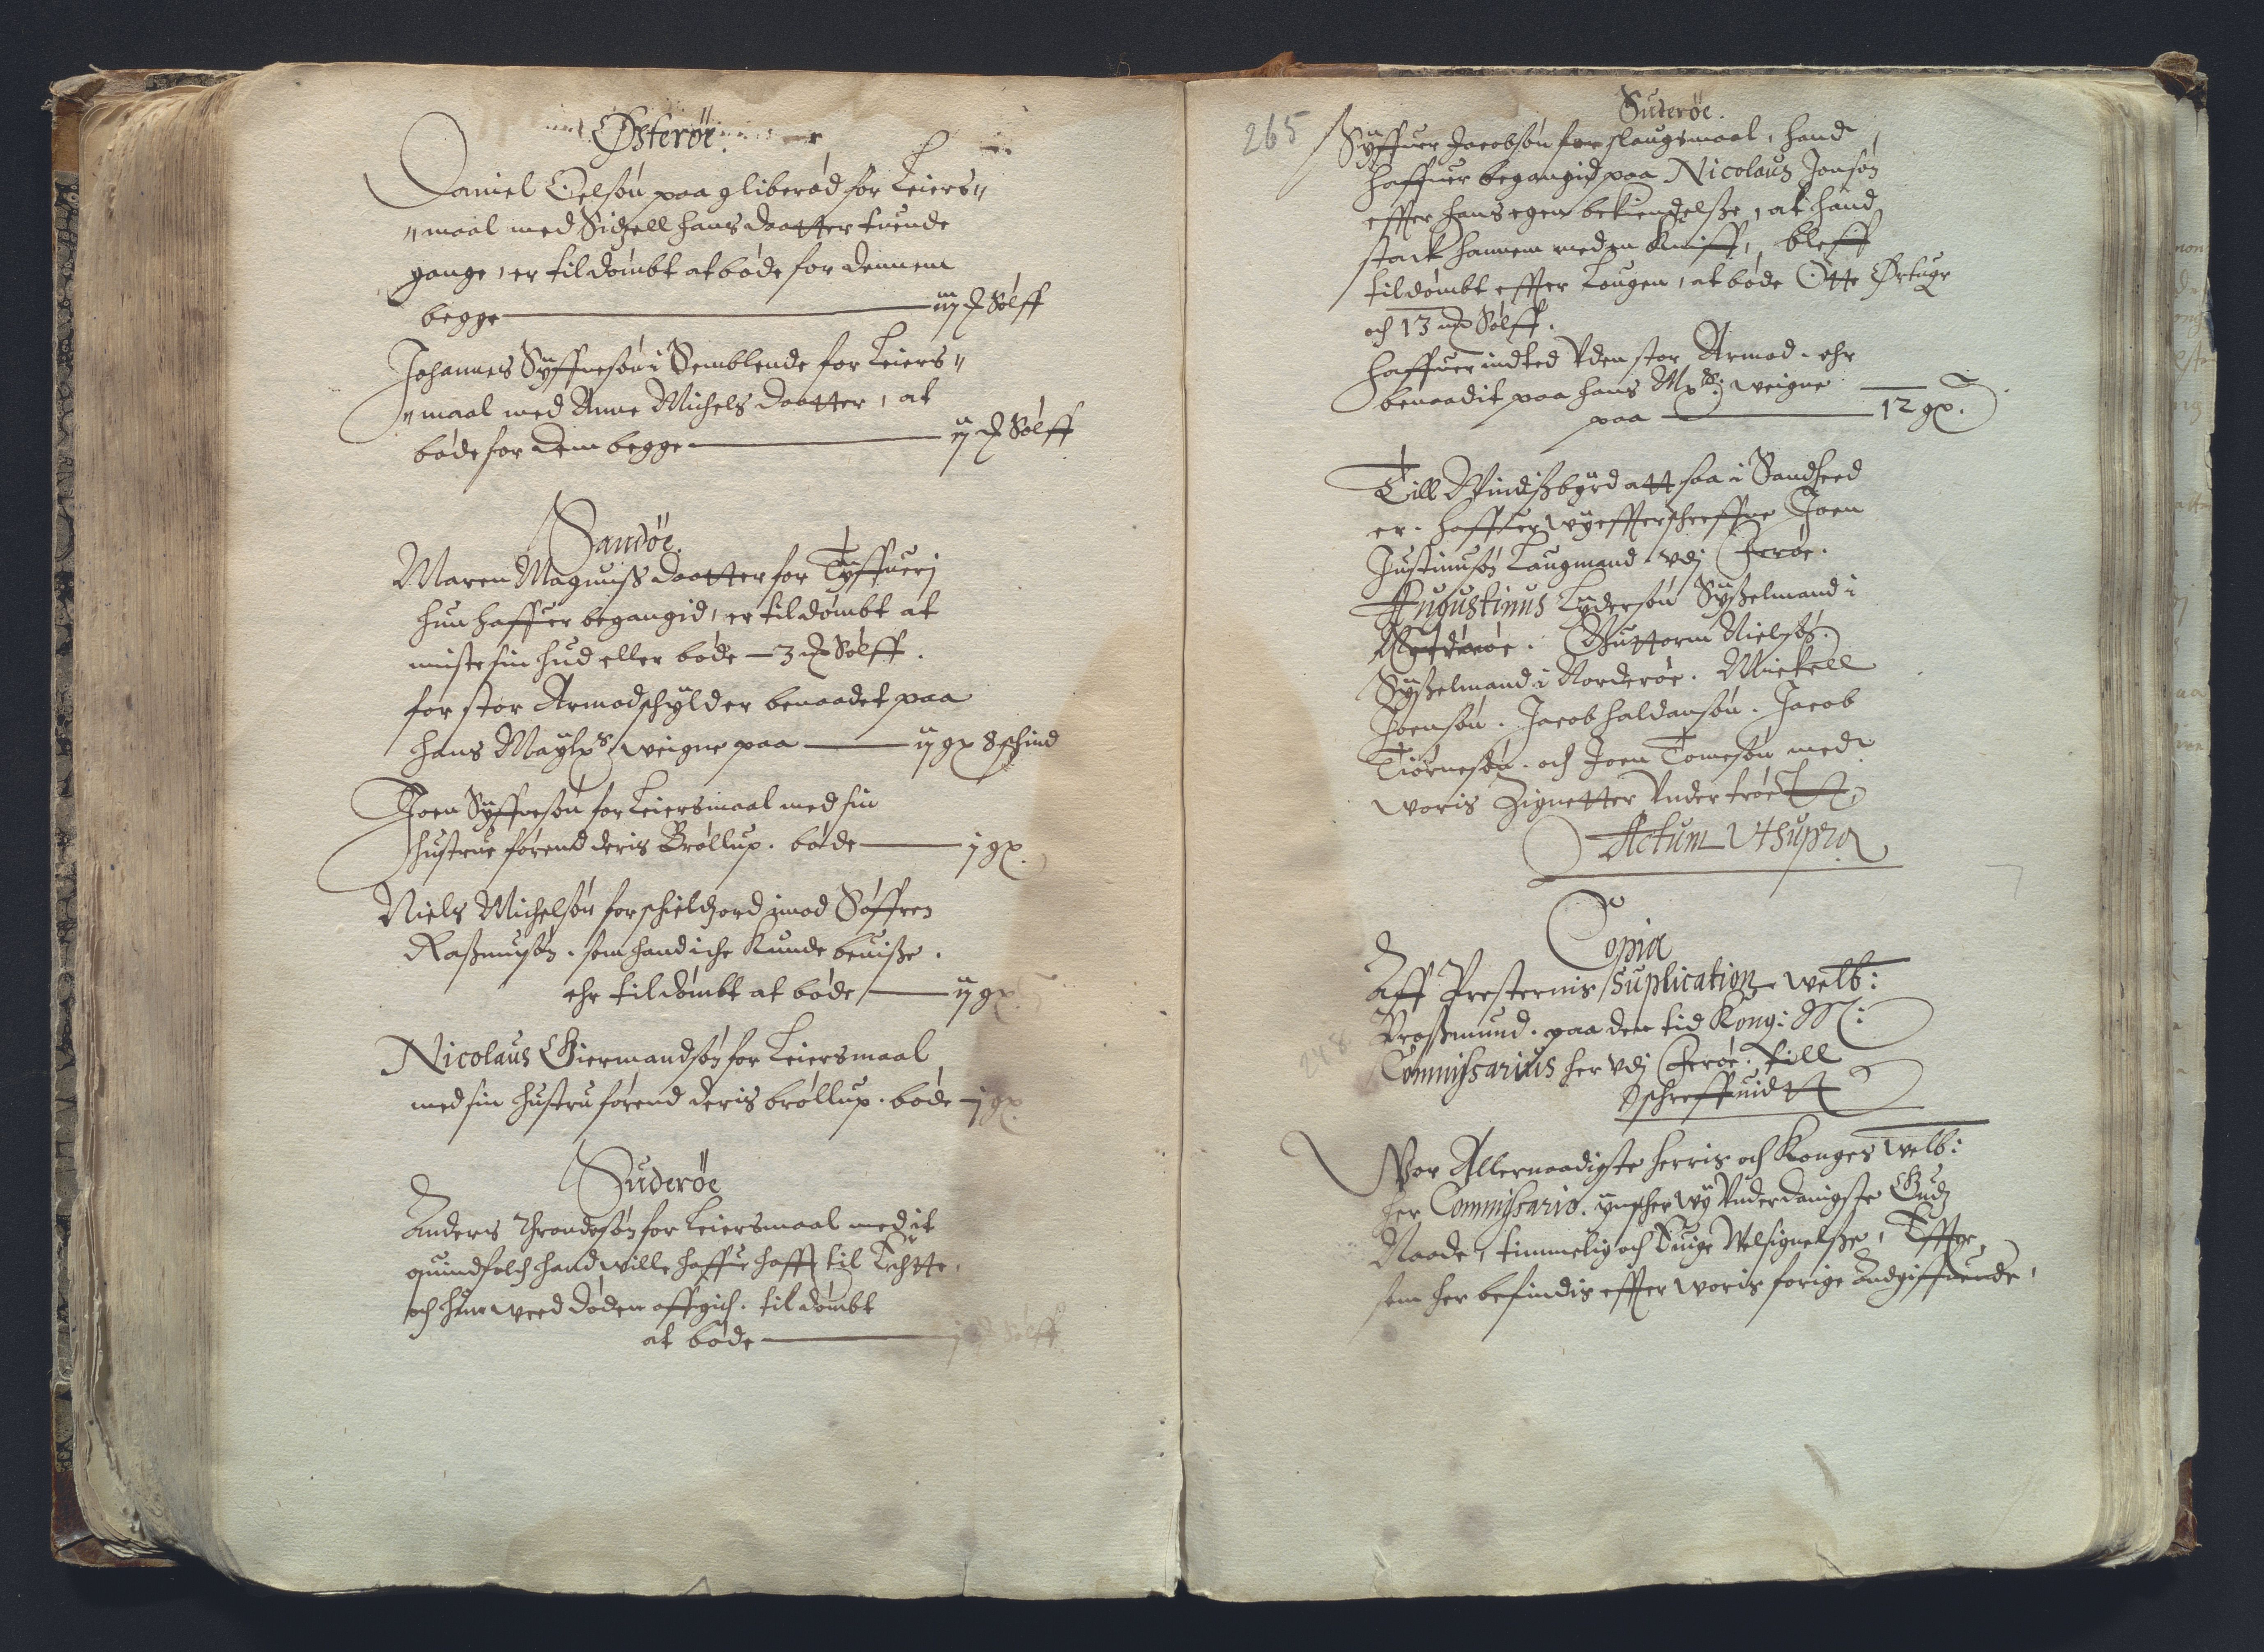 Østerøe.
Daniel Oelsøn paa gliberød for Leiers"
"maal med Sidzell hans daatter tuende
gange, er tildømbt at bøde for dennem
begge — Sølff
Johannes Syffuesøn i Semblende for Leiers"
"maal med Anne Michels daatter, at
bøde for dem begge — ij Sølff
Sandøe.
Maren Magnuss daatter for Tyffuerj
hun haffuer begangid, er tildømbt at
miste sin hud eller bøde — 3 Sølff.
for stor Armod schyld er benaadet paa
hans weigne paa — ij gl 8 schind
Joen Syffuesøn for Leiersmaal med sin
hustrue førend deris Brøllup. bøde — j gl.
Niels Michelsøn for schieldzord imod Søffren
Rasmusøn. som hand iche kunde beuisse.
ehr tildømbt at bøde — ij gl
Nicolaus Giermandsøn for Leiersmaal
med sin hustru førend deris brøllup. bøde — j gl.
Suderøe
Anders Throndsøn for Leiersmaal med it
quindfolch hand wille haffue hafft til Echte.
och hun weed døden affgich. tildømbt
at bøde — Sølff
265
Suderøe.
Syffuer Jacobsøn for slaugsmaal, hand
haffuer begangid paa Nicolaus Jonsøn
effter hans egen bekiendelsse, at hand
stack hannem med en Kniff, bleff
tildømbt effter Lougen, at bøde Otte Ørtuger
och 13 Sølff.
haffuer indted uden stor Armod. ehr
benaadit paa hans weigne
paa — 12 gl.
Till Windisbyrd att saa i Sandhed
er. haffuer wy effterschreffne Joen
Justinusøn Laugmand udj Ferøe.
Augustinus Lydersøn Sysselmand i
Guttorm Nielsøn.
Sysselmand i Norderøe. Mickell
Joensøn. Jacob Haldansøn. Jacob
Tiørnesøn. och Joen Tomesøn med
woris Zignetter under trøckt
Actum Ut supra
Copia
Aff Presternis Suplication welb:
Brossmund. paa den tid Kong: M:
248
Commissarius her udj Ferøe. till
schreffuidtt
Vor Allernaadigste herris och Konges welb:
her Commissario. ynscher wy Underdanigste Gudz
Naade, timmelig och Euige Velsignelsse,
som her befindis effter woris forige Andgiffuende,